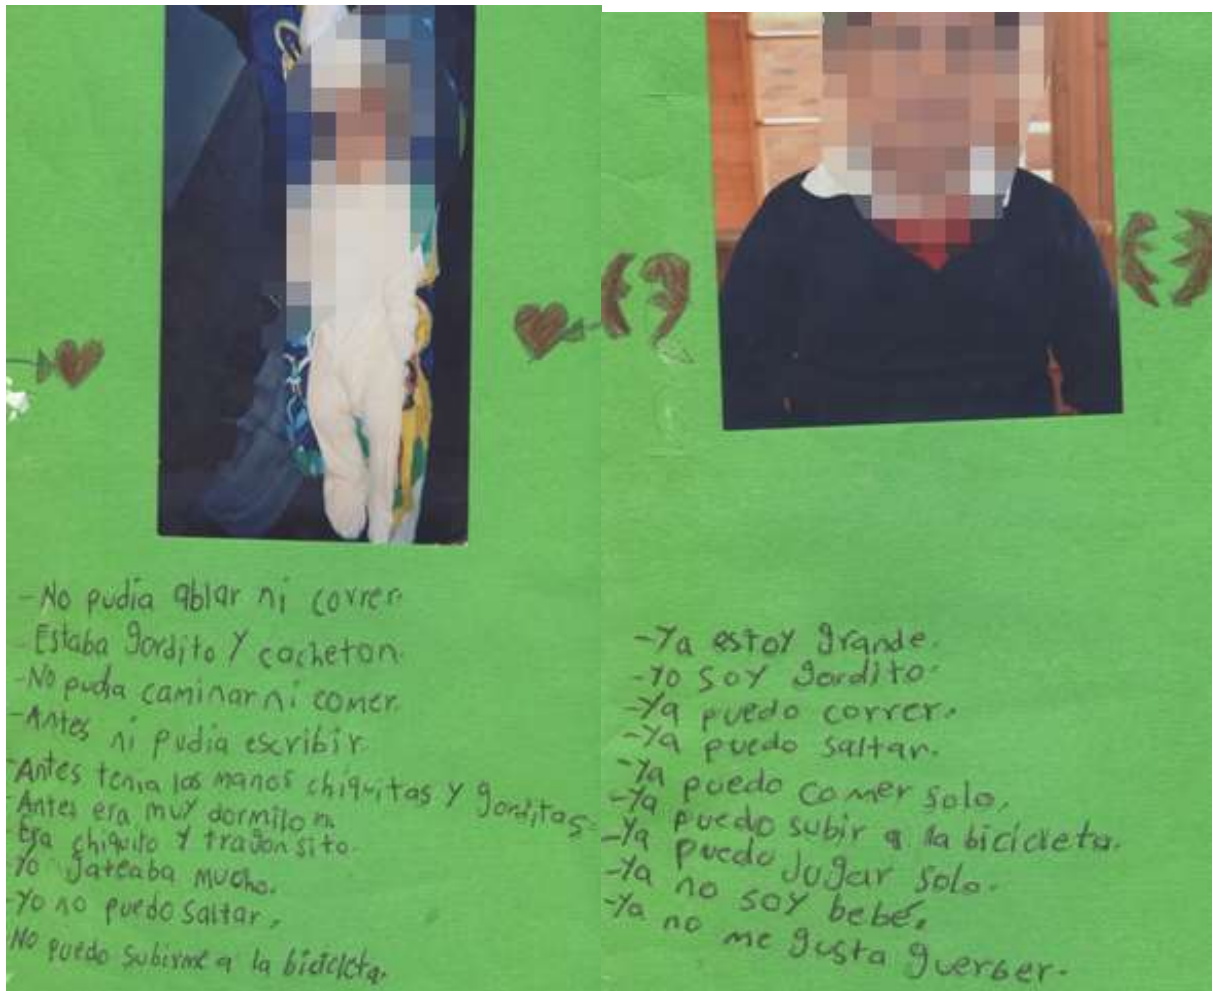 -No pudia ablar ni correr.
-Estaba gordito y cacheton.
-No pudia caminar ni comer.
-Antes ni pudia escribir.
-Antes tenia las manos chiquitas y gorditas.
-Antes era muy dormilon.
-Era chiquito y tragonsito.
-Yo gateaba mucho.
-Yo no puedo saltar,
-No puedo subirme a la bicicleta.
-Ya estoy grande.
-Yo soy gordito.
-Ya puedo correr.
-Ya puedo saltar.
-Ya puedo comer solo.
-Ya puedo subir a la bicicleta.
-Ya puedo jugar solo.
-Ya no soy bebé.
-Ya no me gusta guerber.